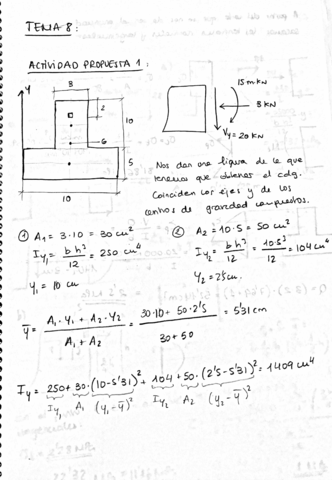 TEMA 8:
ACTIVIDAD PROPUESTA 1:
Y
3
2
10
6
5
10
15 m·kN
8 kN
Vy = 20 kN
Nos dan una figura de la que
tenemos que obtener el cdg.
Coinciden los ejes y de los
centros de gravedad compuestos.
① A₁ = 3·10 = 30 cm²
I_Y₁ = b h³ / 12 = 250 cm⁴
Y₁ = 10 cm
② A₂ = 10·5 = 50 cm²
I_Y₂ = b h³ / 12 = 10·5³ / 12 = 104 cm⁴
Y₂ = 2'5 cm.
ȳ = (A₁·Y₁ + A₂·Y₂) / (A₁ + A₂) = (30·10 + 50·2'5) / (30 + 50) = 5'31 cm
I_Y = 250 + 30·(10-5'31)² + 104 + 50·(2'5-5'31)² = 1409 cm⁴
I_Y₁ A₁ (y₁-ȳ)² I_Y₂ A₂ (y₂-ȳ)²